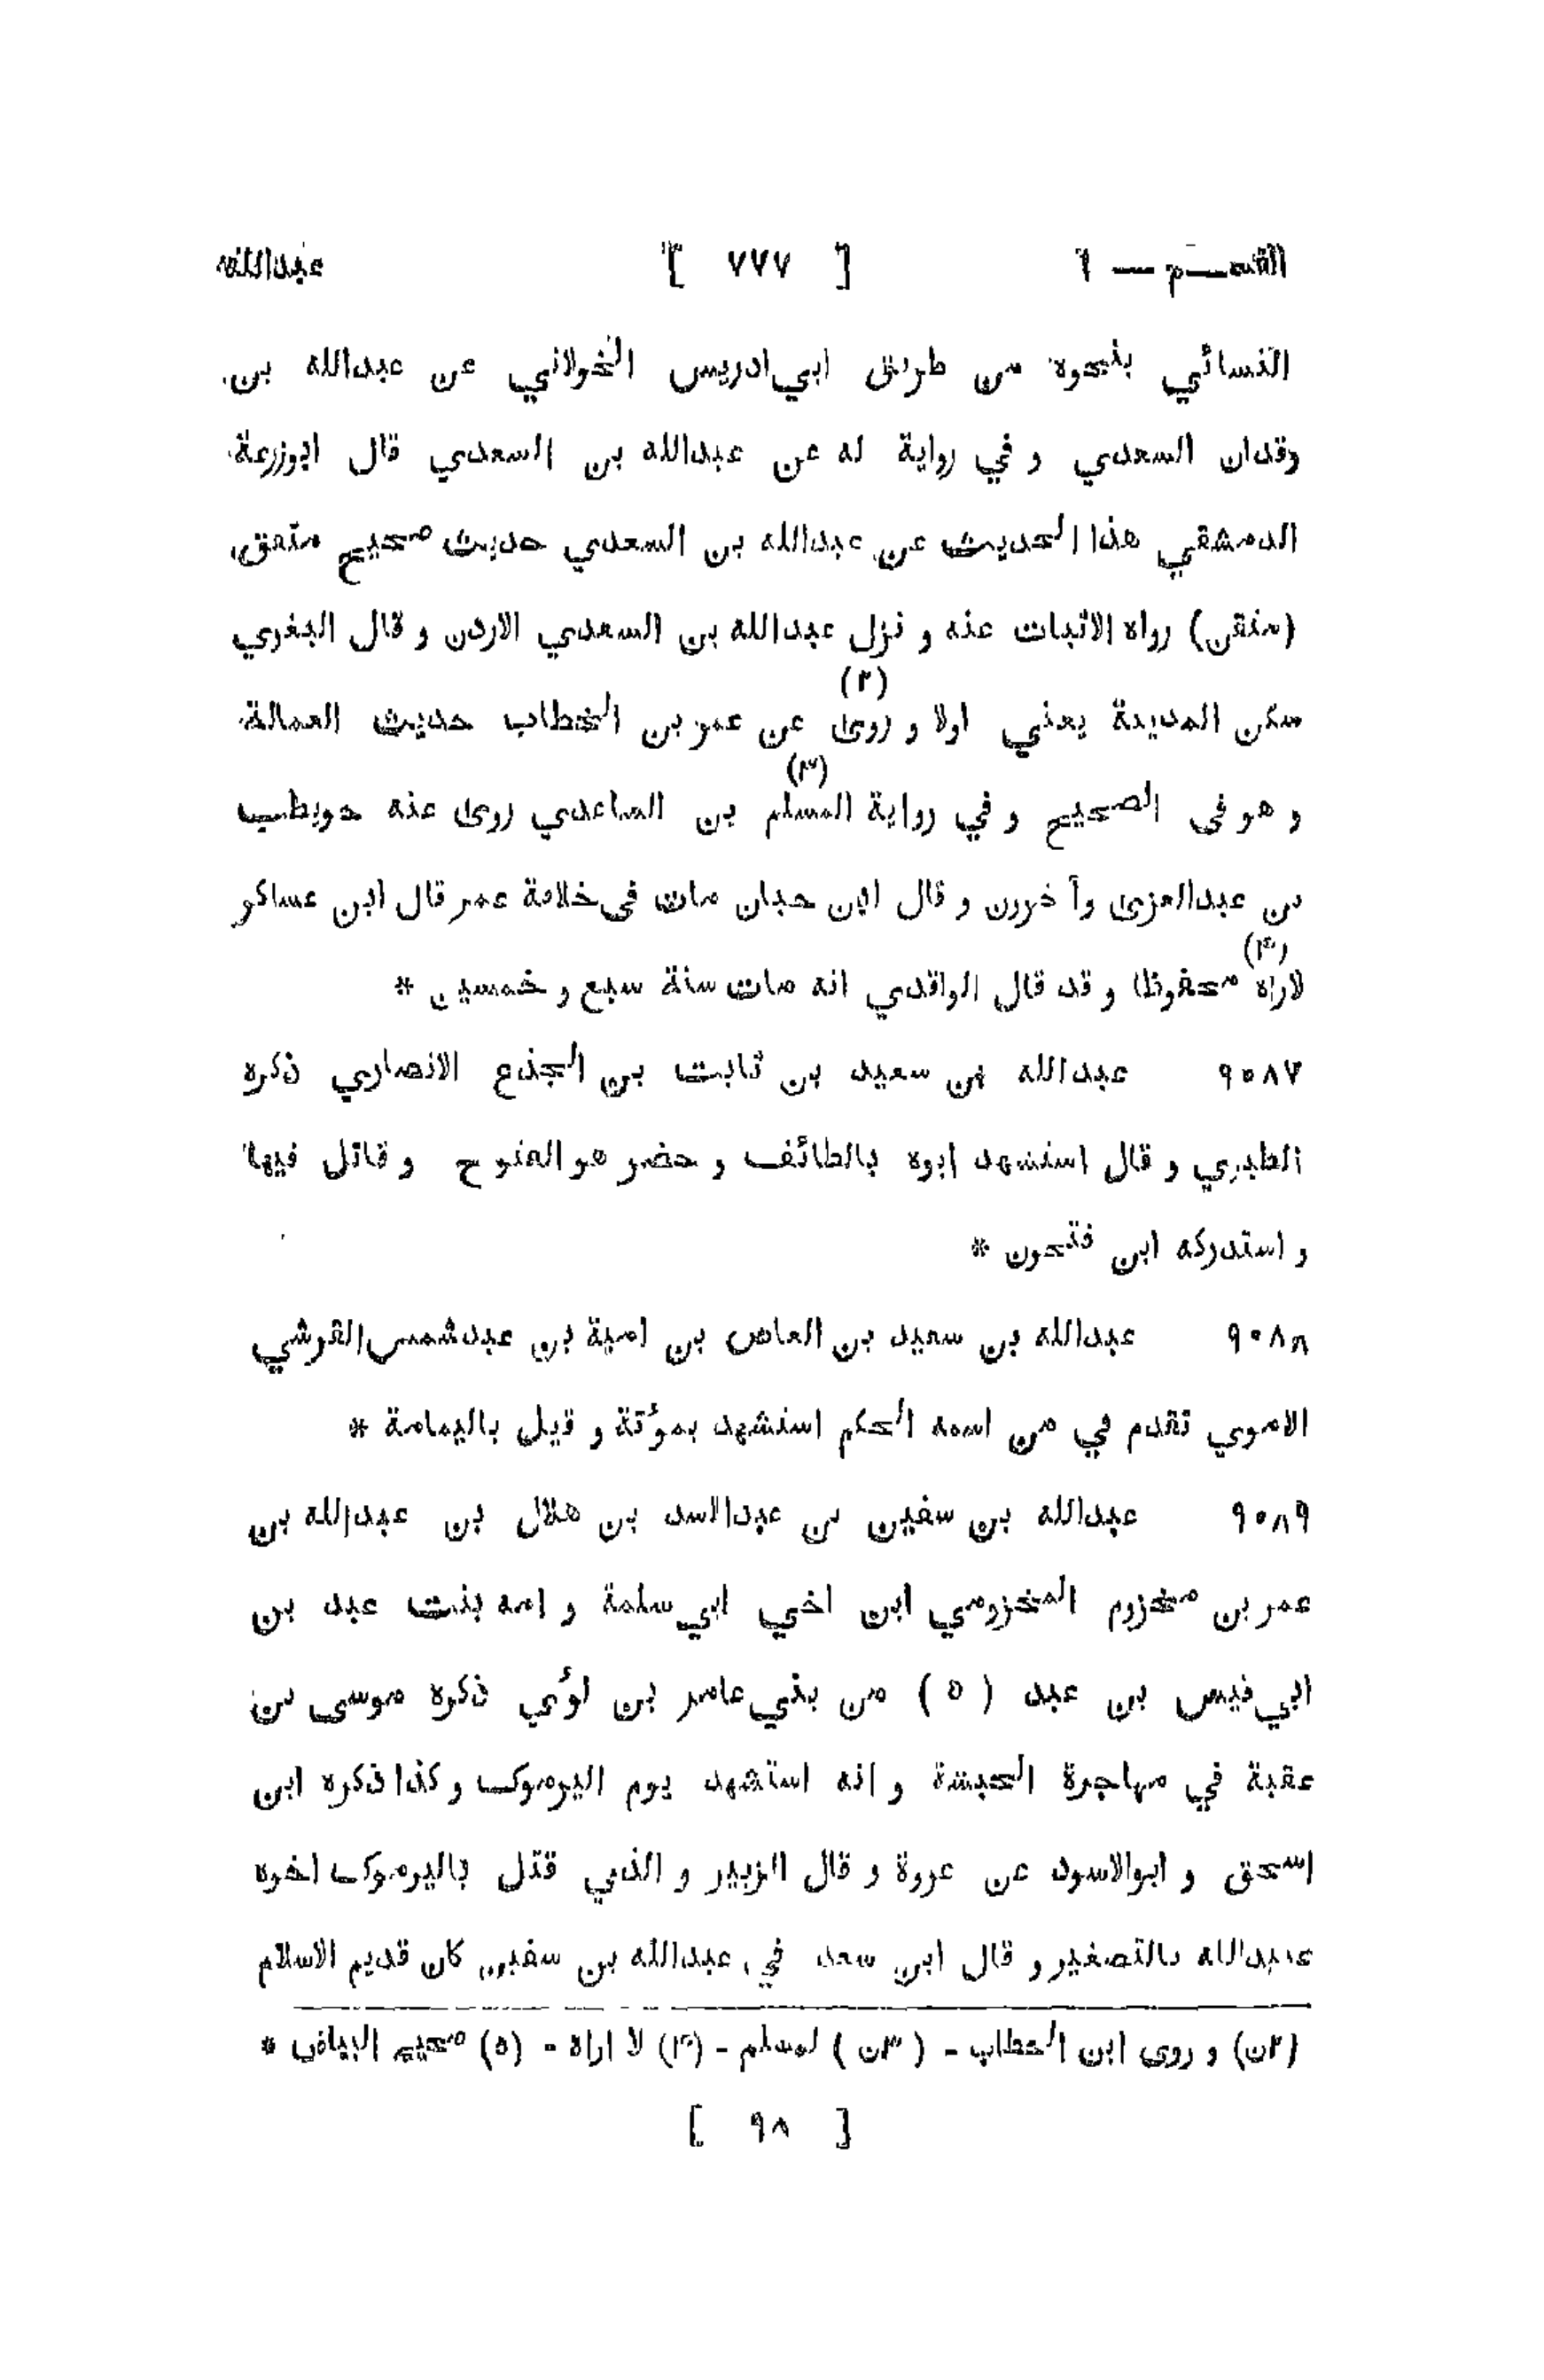 القسم — ١ [ ٧٧٧ ] عبدالله
النسائي بنحوه من طريق ابي ادريس الخولاني عن عبدالله بن
وقدان السعدي و في رواية له عن عبدالله بن السعدي قال ابوزرعة
الدمشقي هذا الحديث عن عبدالله بن السعدي حديث صحيح متقن
(متقن) رواه الاثبات عنه و نزل عبدالله بن السعدي الاردن و قال البغوي
سكن المدينة يعني اولا و روى (٢) عن عمر بن الخطاب حديث العمالة
و هو فى الصحيح و في رواية المسلم (٣) بن الساعدي روى عنه حويطب
بن عبدالعزى وآخرون و قال ابن حبان مات فى خلافة عمر قال ابن عساكر
لاراه (۴) محفوظا و قد قال الواقدي انه مات سنة سبع و خمسين *
٩٠٨٧ عبدالله بن سعيد بن ثابت بن الجذع الانصاري ذكره
الطبري و قال استشهد ابوه بالطائف و حضر هو الفتوح و قاتل فيها
و استدركه ابن فتحون *
٩٠٨٨ عبدالله بن سعيد بن العاص بن امية بن عبدشمس القرشي
الاموي تقدم في من اسمه الحكم استشهد بمؤتة و قيل باليمامة *
٩٠٨٩ عبدالله بن سفين بن عبدالاسد بن هلال بن عبدالله بن
عمر بن مخزوم المخزومي ابن اخي ابي سلمة و امه بنت عبد بن
ابي قيس بن عبد ( ٥ ) من بني عامر بن لؤي ذكره موسى بن
عقبة في مهاجرة الحبشة و انه استشهد يوم اليرموك و كذا ذكره ابن
اسحق و ابوالاسود عن عروة و قال الزبير و الذي قتل باليرموك اخوه
عبيدالله بالتصغير و قال ابن سعد في عبدالله بن سفين كان قديم الاسلام
(٢ن) و روى ابن الخطاب - ( ٣ن ) لمسلم - (۴) لا اراه - (٥) صحيح البياض *
[ ٩٨ ]